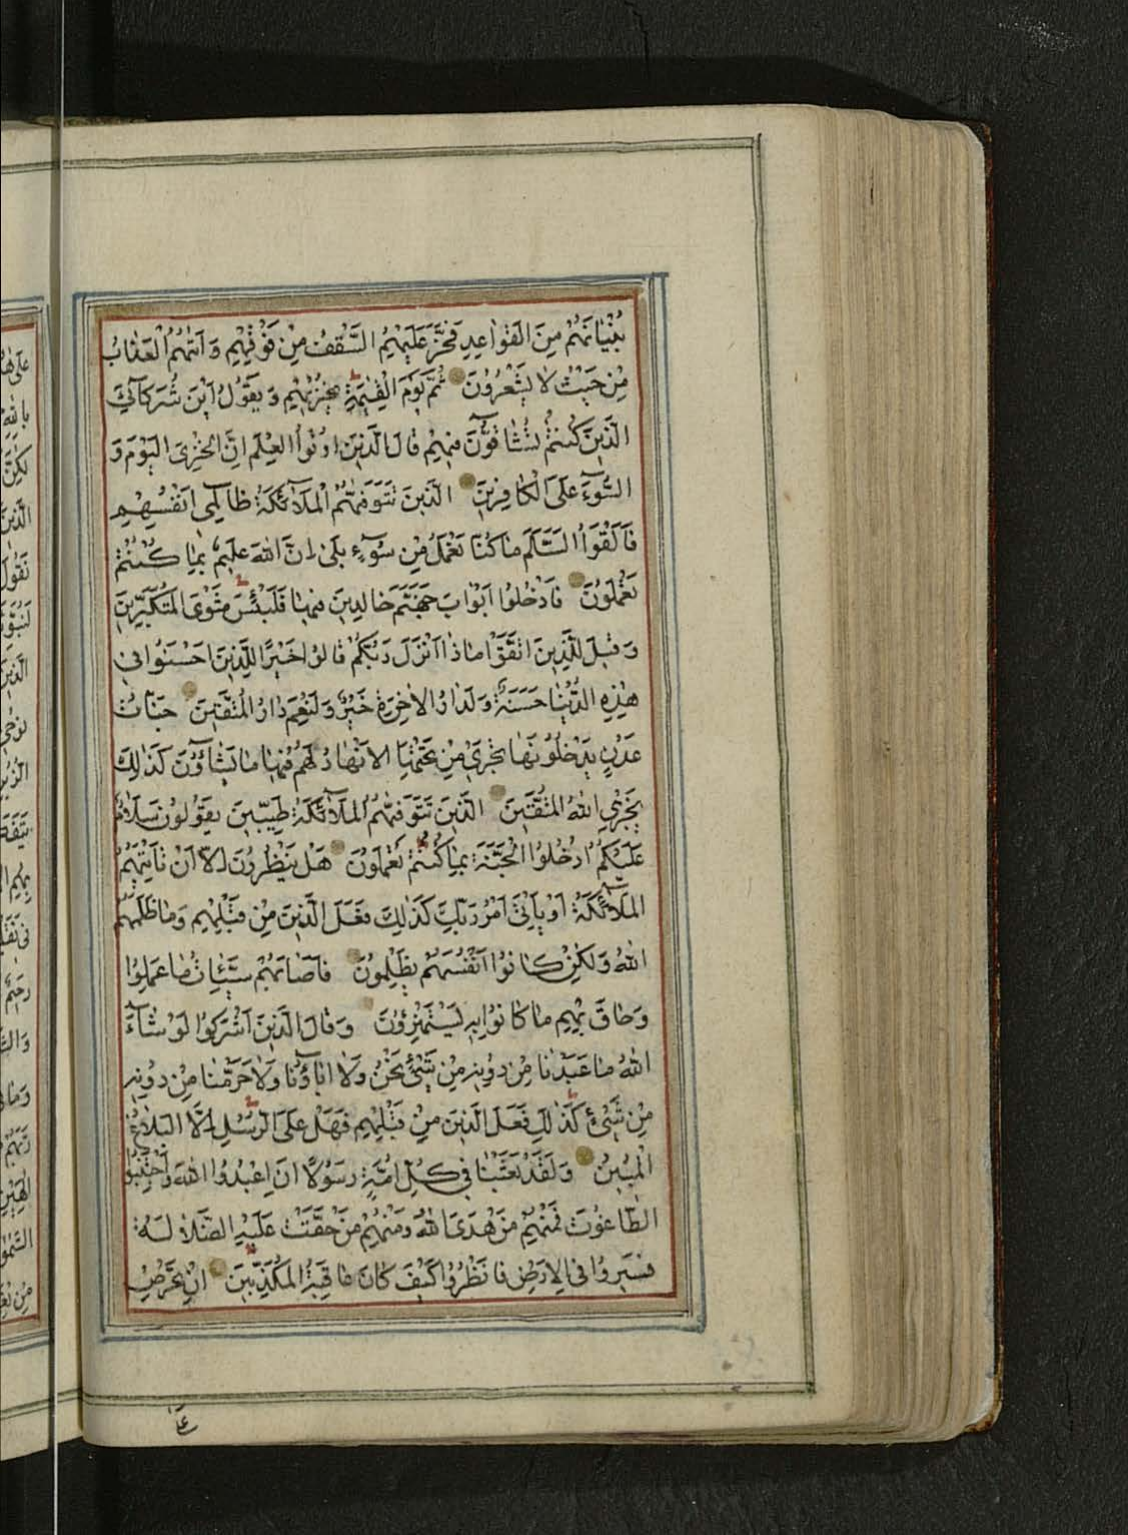 بُنْيَانَهُمْ مِنَ الْقَوَاعِدِ فَخَرَّ عَلَيْهِمُ السَّقْفُ مِنْ فَوْقِهِمْ وَ اَتٰهُمُ الْعَذَابُ
مِنْ حَيْثُ لَا يَشْعُرُونَ ثُمَّ يَوْمَ الْقِيٰمَةِ يُخْزِيْهِمْ وَ يَقُولُ اَيْنَ شُرَكَآئِىَ
الَّذِينَ كُنْتُمْ تُشَآقُّونَ فِيهِمْ قَالَ الَّذِينَ اُوتُوا الْعِلْمَ اِنَّ الْخِزْىَ الْيَوْمَ وَ
السُّوٓءَ عَلَى الْكَافِرِينَ الَّذِينَ تَتَوَفّٰهُمُ الْمَلَآئِكَةُ ظَالِمِى اَنْفُسِهِمْ
فَاَلْقَوُا السَّلَمَ مَا كُنَّا نَعْمَلُ مِنْ سُوٓءٍ بَلٰى اِنَّ اللّٰهَ عَلِيمٌ بِمَا كُنْتُمْ
تَعْمَلُونَ فَادْخُلُوا اَبْوَابَ جَهَنَّمَ خَالِدِينَ فِيهَا فَلَبِئْسَ مَثْوَى الْمُتَكَبِّرِينَ
وَ قِيلَ لِلَّذِينَ اتَّقَوْا مَاذَا اَنْزَلَ رَبُّكُمْ قَالُوا خَيْرًا لِلَّذِينَ اَحْسَنُوا فِى
هٰذِهِ الدُّنْيَا حَسَنَةٌ وَ لَدَارُ الْاٰخِرَةِ خَيْرٌ وَ لَنِعْمَ دَارُ الْمُتَّقِينَ جَنَّاتُ
عَدْنٍ يَدْخُلُونَهَا تَجْرِى مِنْ تَحْتِهَا الْاَنْهَارُ لَهُمْ فِيهَا مَا يَشَآؤُنَ كَذٰلِكَ
يَجْزِى اللّٰهُ الْمُتَّقِينَ الَّذِينَ تَتَوَفّٰهُمُ الْمَلَآئِكَةُ طَيِّبِينَ يَقُولُونَ سَلَامٌ
عَلَيْكُمُ ادْخُلُوا الْجَنَّةَ بِمَا كُنْتُمْ تَعْمَلُونَ هَلْ يَنْظُرُونَ اِلَّا اَنْ تَاْتِيَهُمُ
الْمَلَآئِكَةُ اَوْ يَاْتِىَ اَمْرُ رَبِّكَ كَذٰلِكَ فَعَلَ الَّذِينَ مِنْ قَبْلِهِمْ وَ مَا ظَلَمَهُمُ
اللّٰهُ وَ لٰكِنْ كَانُوا اَنْفُسَهُمْ يَظْلِمُونَ فَاَصَابَهُمْ سَيِّئَاتُ مَا عَمِلُوا
وَ حَاقَ بِهِمْ مَا كَانُوا بِهِ يَسْتَهْزِؤُنَ وَ قَالَ الَّذِينَ اَشْرَكُوا لَوْ شَآءَ
اللّٰهُ مَا عَبَدْنَا مِنْ دُونِهِ مِنْ شَىْءٍ نَحْنُ وَ لَا اٰبَآؤُنَا وَ لَا حَرَّمْنَا مِنْ دُونِهِ
مِنْ شَىْءٍ كَذٰلِكَ فَعَلَ الَّذِينَ مِنْ قَبْلِهِمْ فَهَلْ عَلَى الرُّسُلِ اِلَّا الْبَلَاغُ
الْمُبِينُ وَ لَقَدْ بَعَثْنَا فِى كُلِّ اُمَّةٍ رَسُولًا اَنِ اعْبُدُوا اللّٰهَ وَ اجْتَنِبُوا
الطَّاغُوتَ فَمِنْهُمْ مَنْ هَدَى اللّٰهُ وَ مِنْهُمْ مَنْ حَقَّتْ عَلَيْهِ الضَّلَالَةُ
فَسِيرُوا فِى الْاَرْضِ فَانْظُرُوا كَيْفَ كَانَ عَاقِبَةُ الْمُكَذِّبِينَ اِنْ تَحْرِصْ